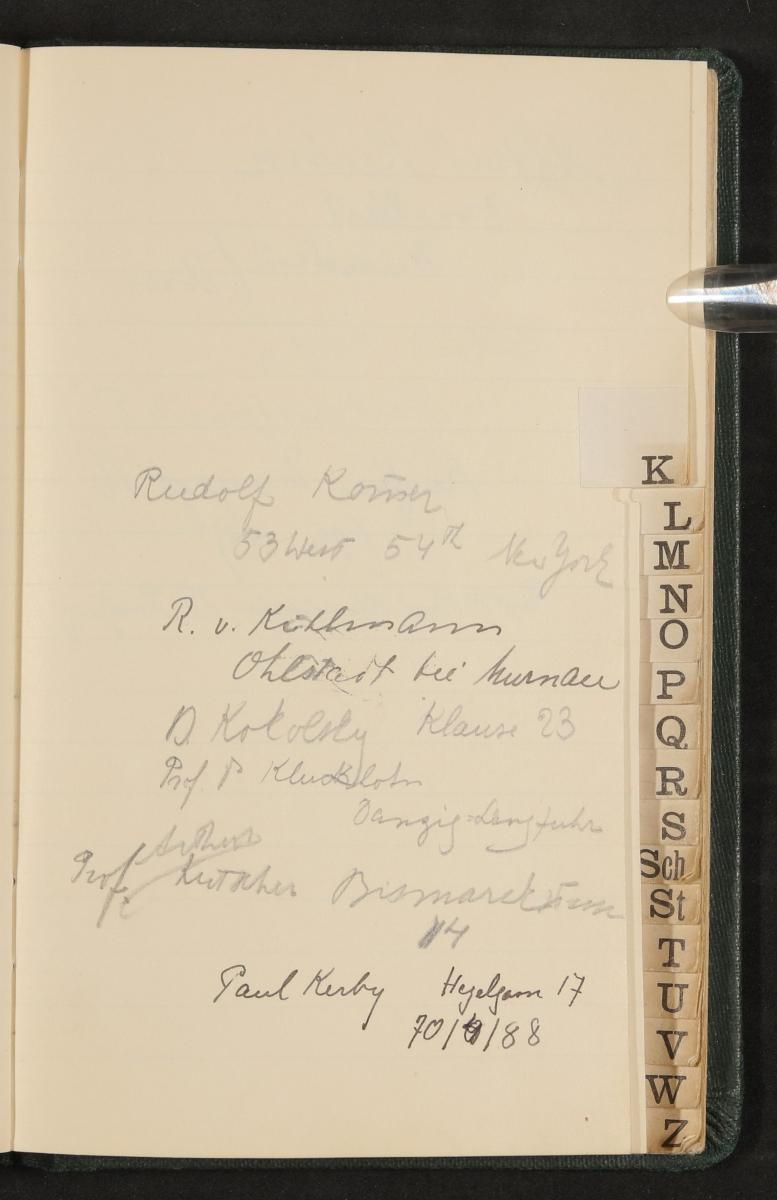 Rudolf Kommer
53 West 54th New York
R. v. Kühlmann
Ohlstadt bei Murnau
D. Kokolsky Klause 23
Prof. P Kluckhohn
Danzig-Langfuhr
Arthur
Prof. Kutscher Bismarckstrasse
14
Paul Kerby Hegelgasse 17
70/4/88
K
L
M
N
O
P
Q
R
S
Sch
St
T
U
V
W
Z